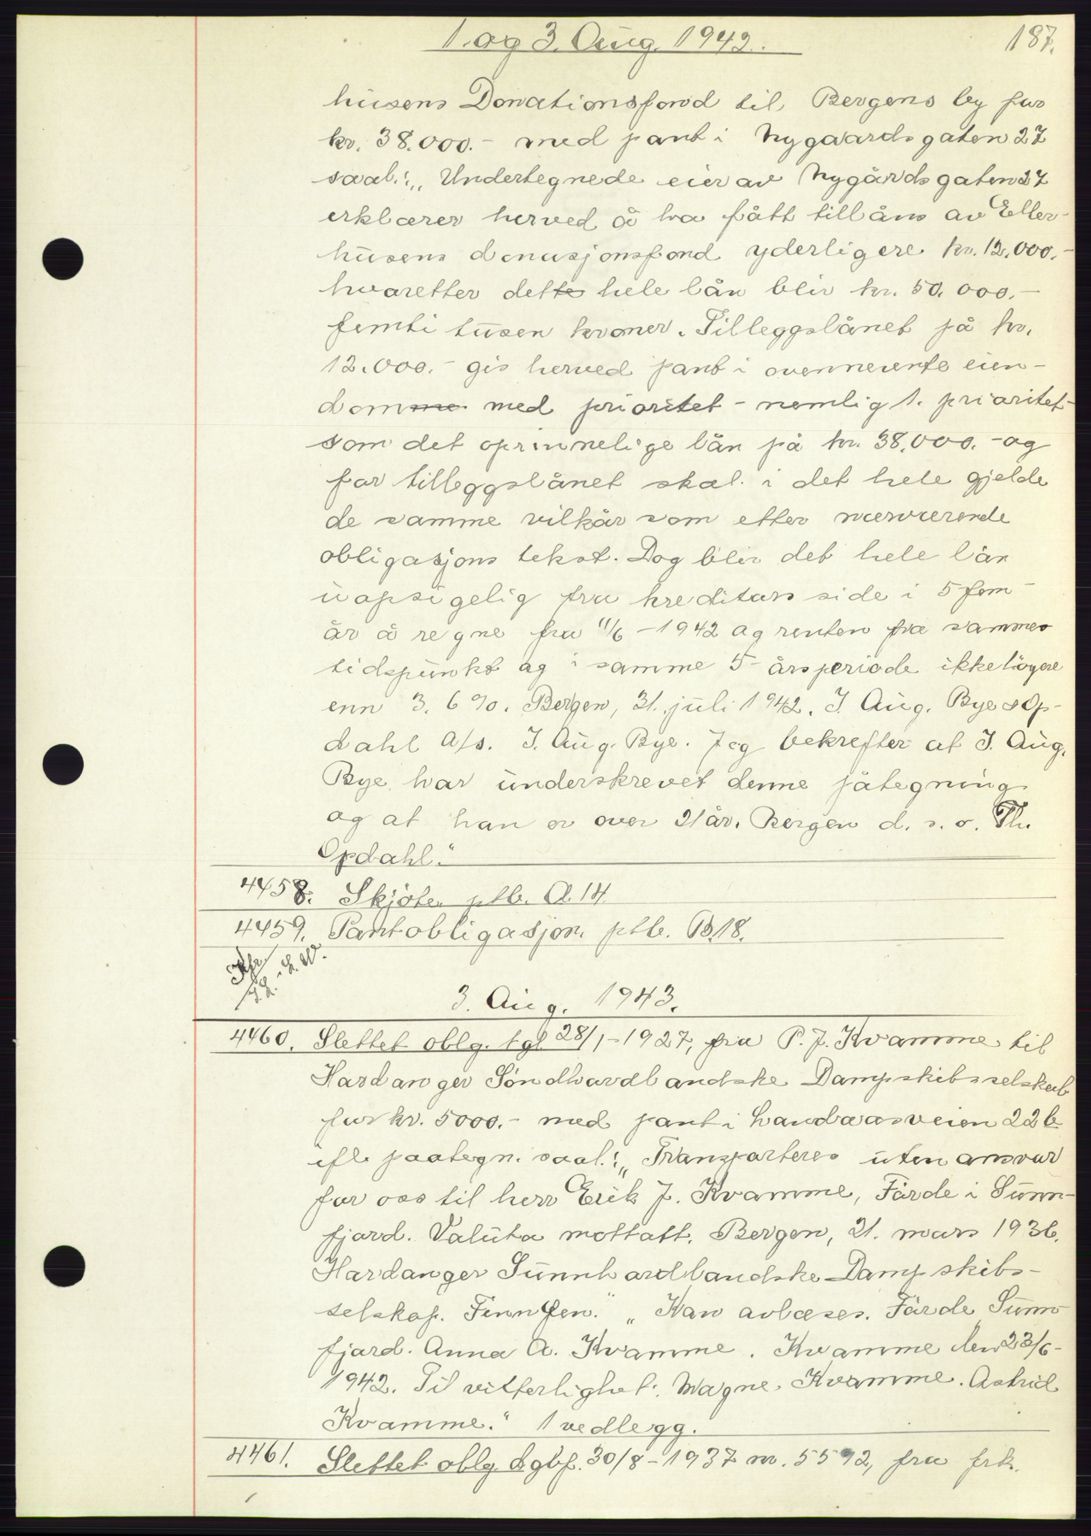 1. og 3. Aug. 1942.
187.
husens Donationsfond til Bergens by for
kr. 38.000.- med pant i Nygaardsgaten 27
saal.: „Undertegnede eier av Nygårdsgaten 27
erklærer herved å ha fått tillåns av Eller-
husens donasjonsfond yderligere kr. 12.000.-
hvoretter dette hele lån blir kr. 50.000.-
femti tusen kroner. Tilleggslånet på kr.
12.000.- gis herved pant i ovennevnte eien-
domme med prioritet - nemlig 1. prioritet-
som det oprinnelige lån på kr. 38.000.- og
for tilleggslånet skal i det hele gjelde
de samme vilkår som etter nærværende
obligasjons tekst. Dog blir det hele lån
uopsigelig fra kreditors side i 5 fem
år å regne fra 11/6 - 1942 og renten fra samme
tidspunkt og i samme 5-årsperiode ikke høyere
enn 3.6%. Bergen, 31. juli 1942. J. Aug. Bye & Op-
dahl A/s. J. Aug. Bye. Jeg bekrefter at J. Aug.
Bye har underskrevet denne påtegning
og at han er over 21 år. Bergen d. s. o. Th.
Opdahl."
4458. Skjöte, ptb. A.14.
4459. Pantobligasjon, ptb. B.18.
3. Aug. 1943.
4460. Slettet oblg. tgl 28/1 - 1927, fra P. J. Kvamme til
Hardanger Söndhordlandske Dampskibsselskab
for kr. 5000.- med pant i Landaasveien 22 b
ifl. paategn. saal.: „Transporteres uten ansvar
for oss til herr Erik J. Kvamme, Förde i Sunn-
fjord. Valuta mottatt. Bergen, 21. mars 1936.
Hardanger Sunnhordlandske Dampskibs-
selskap. Finn Gjen." „Kan avlæses. Förde Sunn-
fjord. Anna A. Kvamme. Kvamme den 23/6 -
1942. Til vitterlighet: Magne Kvamme. Astrid
Kvamme." 1 vedlegg.
4461. Slettet oblg. dgbf. 30/8 - 1937 nr. 5592, fra frk.